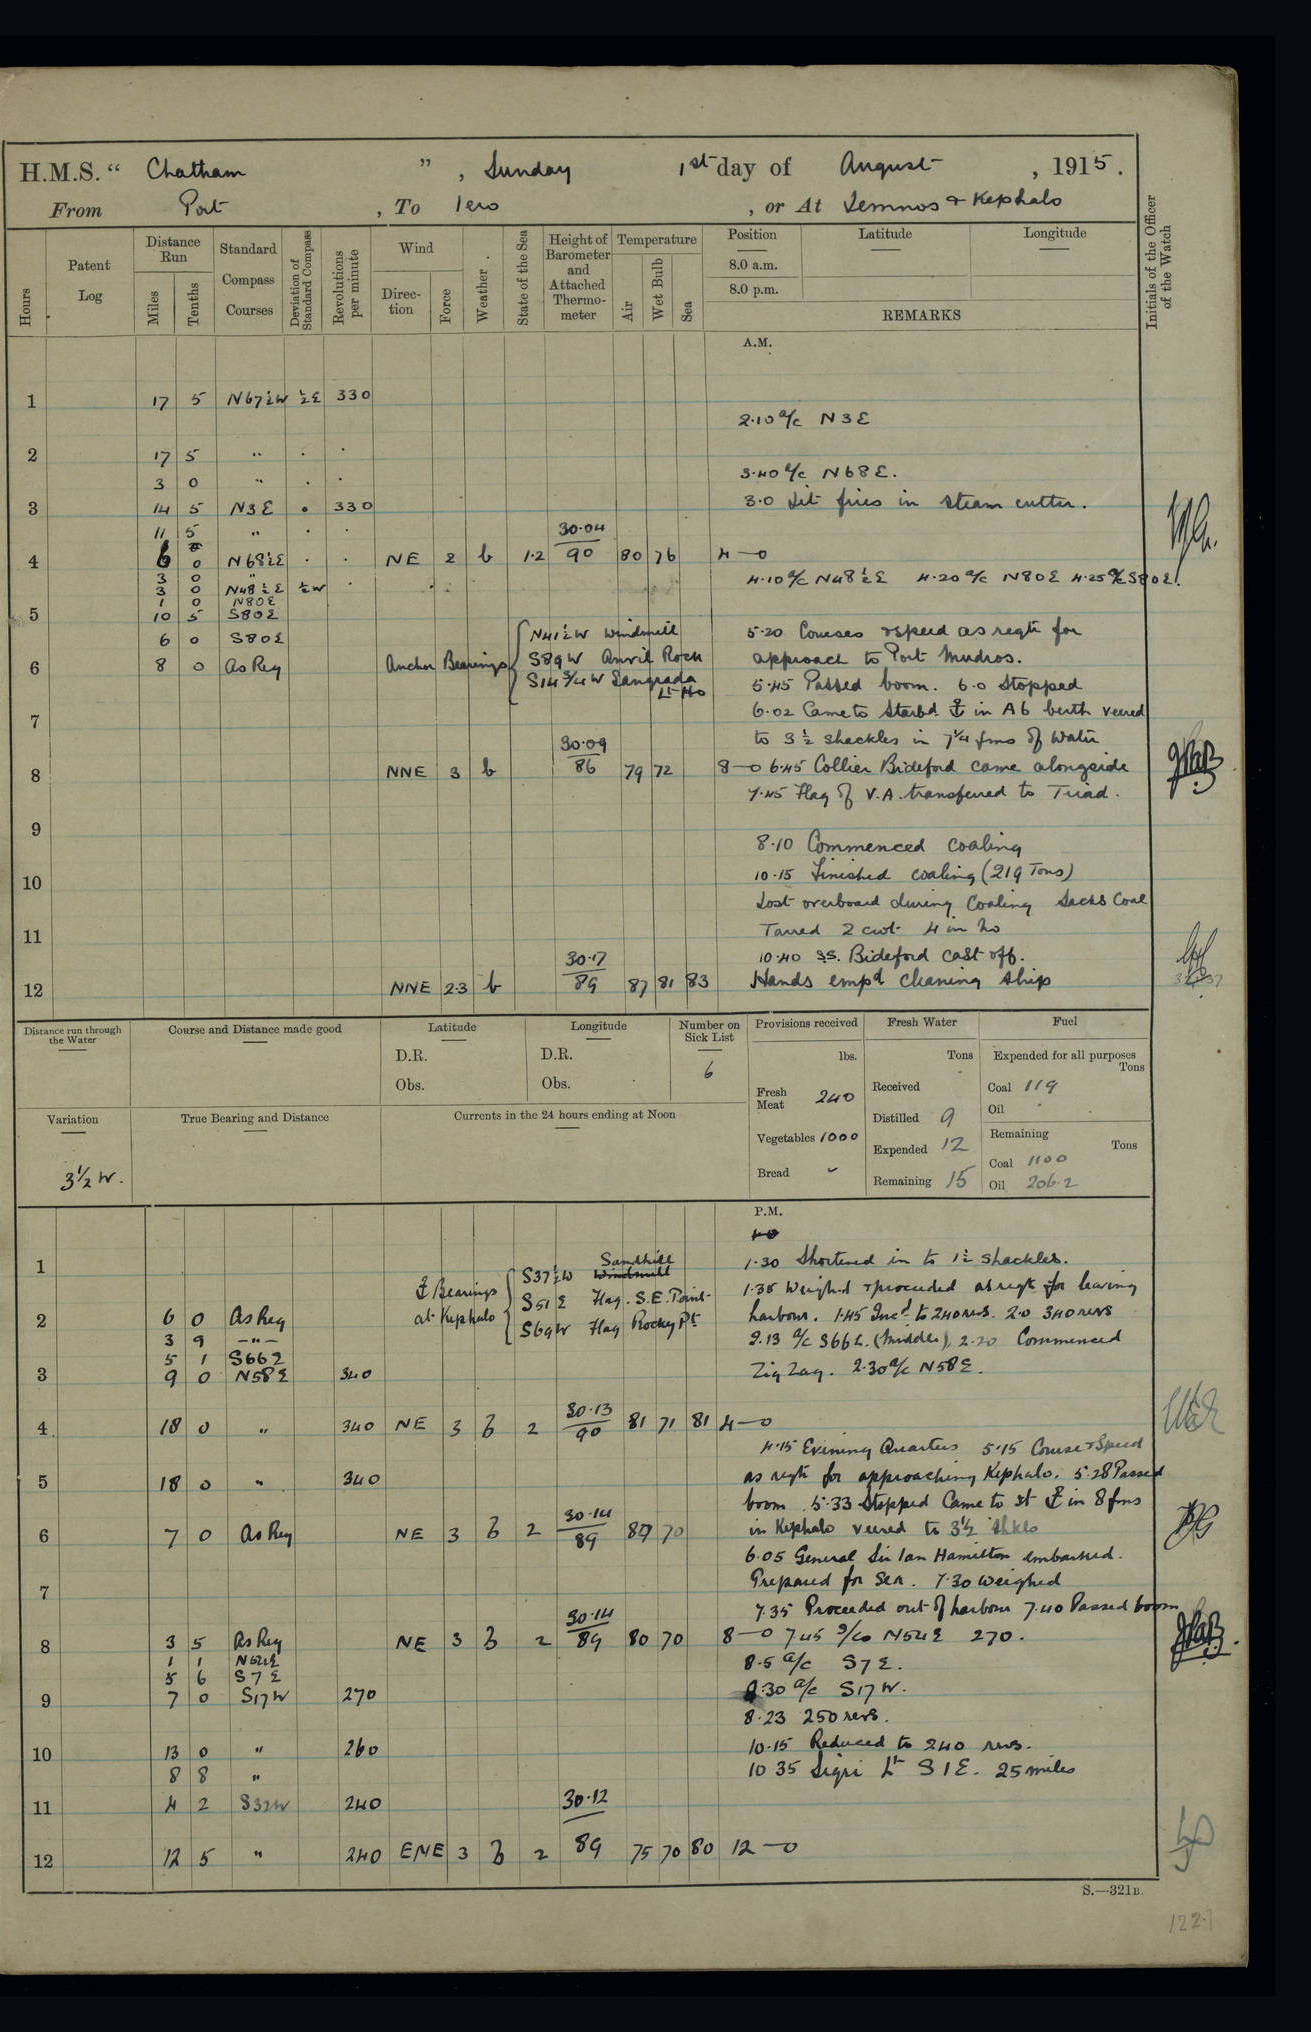 H.M.S. “ Chatham ” , Sunday 1st day of August , 1915.
From Port , To Iero , or At Lemnos & Kephalo
Hours
Patent Log
Distance Run
Miles
Tenths
Standard Compass Courses
Deviation of Standard Compass
Revolutions per minute
Wind
Direction
Force
Weather
State of the Sea
Height of Barometer and Attached Thermometer
Temperature
Air
Wet Bulb
Sea
Position
8.0 a.m.
8.0 p.m.
Latitude
Longitude
REMARKS
Initials of the Officer of the Watch
A.M.
1 17 5 N67½W ½E 330
2.10 a/c N3E
2 17 5 " . .
3.40 a/c N68E.
3 0 " . .
3 14 5 N3E . 330 3.0 Lit fires in steam cutter.
11 5 " . .
4 6 0 N68½E . . NE 2 b 1.2 30.04 90 80 76 4—0
3 0 "
4.10 a/c N48½E 4.20 a/c N80E 4.25 a/c S80E.
3 0 N48½E ½W .
1 0 N80E
5 10 5 S80E
6 0 S80E
6 8 0 As Req Anchor Bearings { N41½W Windmill
S89W Anvil Rock
S14¾W Sangrada Lt Ho
5.20 Courses & speed as reqte for
approach to Port Mudros.
5.45 Passed boom. 6.0 Stopped
7 6.02 Came to Starbd ⚓ in A6 berth veered
to 3½ shackles in 7¼ fms of water
8 NNE 3 b 30.09 86 79 72 8—0 6.45 Collier Bideford came alongside
7.45 Flag of V.A. transferred to Triad.
9
8.10 Commenced coaling
10 10.15 Finished coaling (219 Tons)
Lost overboard during Coaling Sacks Coal
11 Tarred 2 cwt 4 in No
10.40 S.S. Bideford cast off.
12 NNE 2.3 b 30.17 89 87 81 83 Hands empd cleaning ship
Distance run through the Water
Course and Distance made good
Latitude
D.R.
Obs.
Longitude
D.R.
Obs.
Number on Sick List
6
Provisions received
lbs.
Fresh Meat 240
Vegetables 1000
Bread
Fresh Water
Tons
Received
Distilled 9
Expended 12
Remaining 15
Fuel
Expended for all purposes
Tons
Coal 119
Oil
Remaining
Tons
Coal 1100
Oil 206.2
Variation
3½ W.
True Bearing and Distance
Currents in the 24 hours ending at Noon
P.M.
1 1.30 Shortened in to 1½ shackles.
⚓ Bearings at Kephalo { S37½W Sandhill
S51E Flag. S.E. Point
S69W Flag Rocky Pt
1.38 Weighed & proceeded as reqte for leaving
2 6 0 As Req harbour. 1.45 Incd to 240 revs. 2.0 340 revs
3 9 -"-
2.13 a/c S66E. (Middle), 2.20 Commenced
5 1 S66E
3 9 0 N58E 340 Zig Zag. 2.30 a/c N58E.
4 18 0 " 340 NE 3 b 2 30.13 90 81 71 81 4—0
4.15 Evening Quarters 5.15 Course & Speed
5 18 0 " 340 as reqte for approaching Kephalo. 5.28 Passed
boom. 5.33 Stopped Came to St ⚓ in 8 fms
6 7 0 As Req NE 3 b 2 30.14 89 80 70 in Kephalo veered to 3½ Shkls
6.05 General Sir Ian Hamilton embarked.
7 Prepared for Sea. 7.30 Weighed
7.35 Proceeded out of harbour 7.40 Passed boom
8 3 5 As Req NE 3 b 2 30.14 89 80 70 8—0 7.45 S/Co N54E 270.
1 1 N54E
8.5 a/c S7E.
5 6 S7E
9 7 0 S17W 270 8.30 a/c S17W.
8.23 250 revs.
10 13 0 " 260 10.15 Reduced to 240 revs.
8 8 " 10 35 Sigri Lt S1E. 25 miles
11 4 2 S32W 240
12 12 5 " 240 ENE 3 b 2 30.12 89 75 70 80 12—0
S.—321B.
122